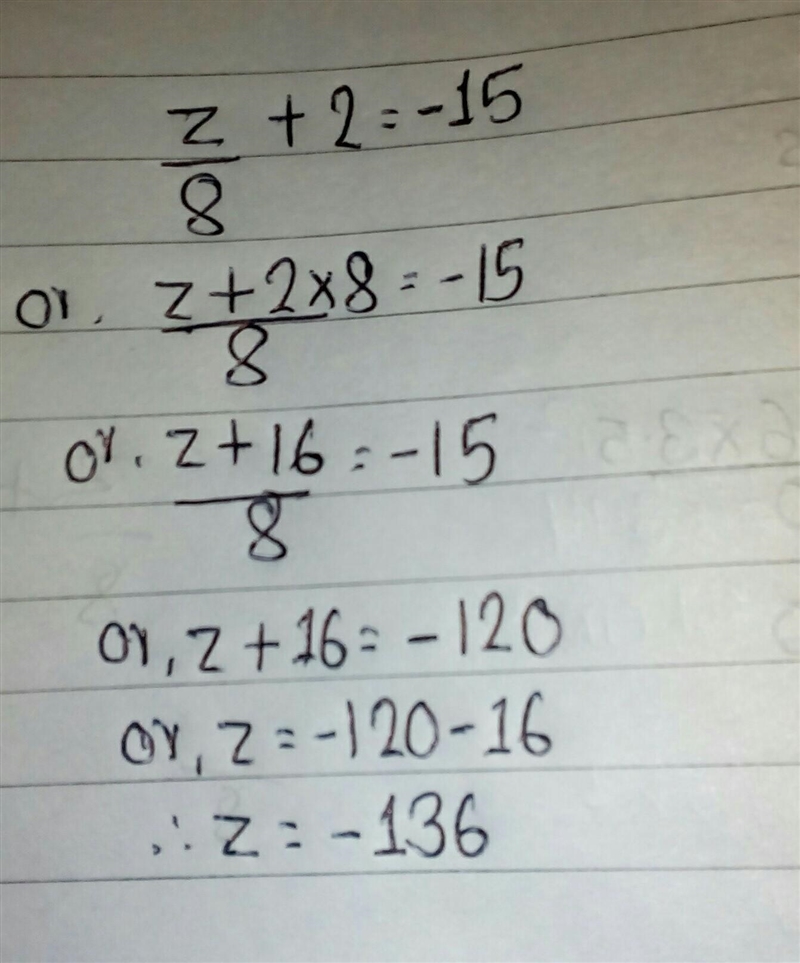 z/8 + 2 = -15
or. z + 2 × 8/8 = -15
or. z + 16/8 = -15
or, z + 16 = -120
or, z = -120 - 16
∴ z = -136